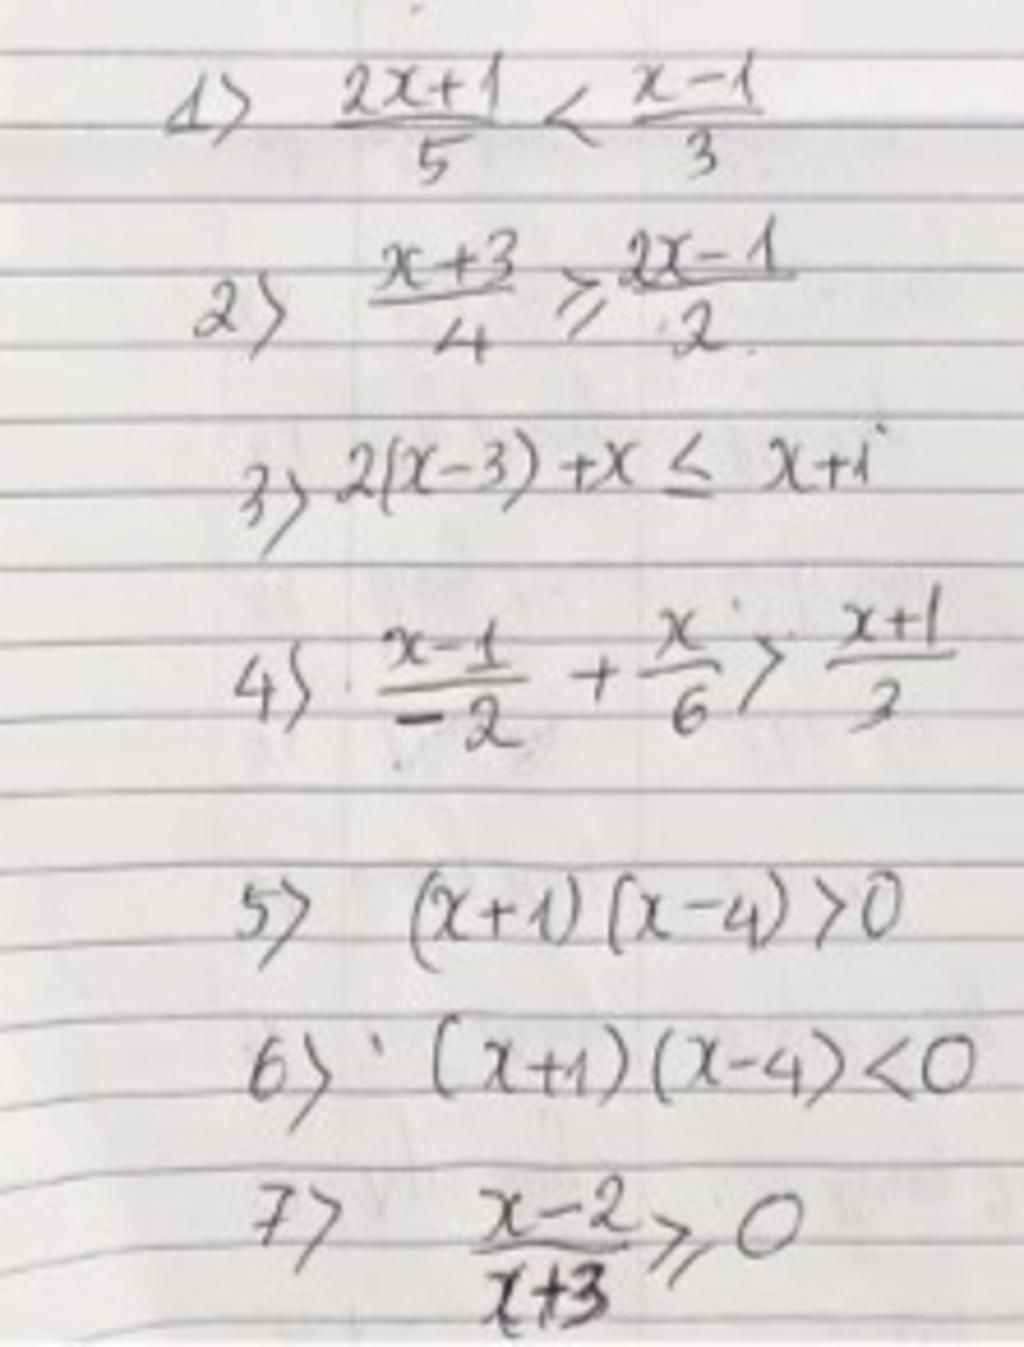 1) (2x+1)/5 < (x-1)/3
2) (x+3)/4 ⩾ (2x-1)/2
3) 2(x-3)+x ≤ x+1
4) (x-1)/-2 + x/6 > (x+1)/2
5) (x+1)(x-4)>0
6) (x+1)(x-4)<0
7) (x-2)/(x+3) ⩾ 0